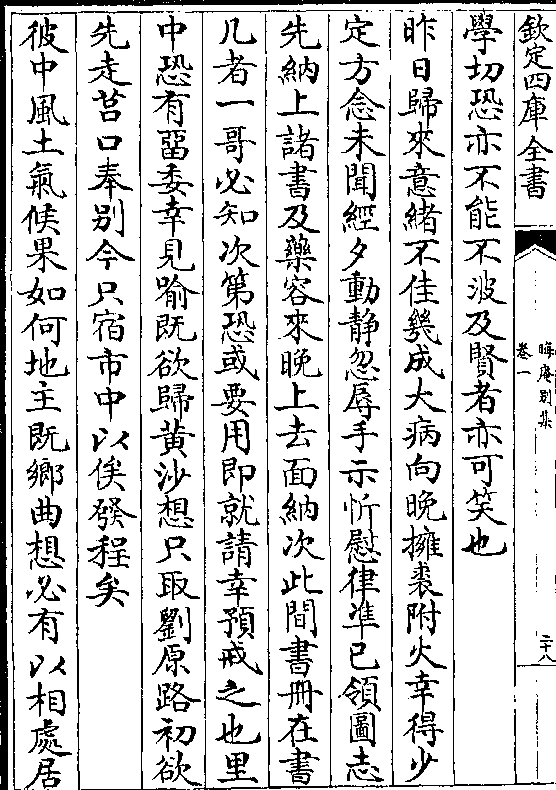 欽定四庫全書
晦庵別集
卷一
二十八
學切恐亦不能不波及賢者亦可笑也
昨日歸來意緒不佳幾成大病向晚擁裘附火幸得少
定方念未聞經夕動靜忽辱手示忻慰律準已領圖志
先納上諸書及藥容來晚上去面納次此間書冊在書
几者一哥必知次第恐或要用即就請幸預戒之也里
中恐有畱委幸見喻既欲歸黃沙想只取劉原路初欲
先走莒口奉别今只宿市中以俟發程矣
彼中風土氣候果如何地主既鄉曲想必有以相處居